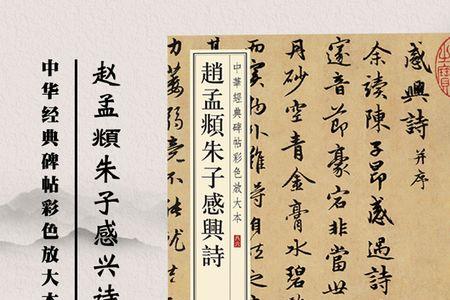 感興詩 并序
余讀陳子昂感遇詩
邃音節豪宕非當世
丹砂空青金膏水碧
而實物外難得自然之
中華經典碑帖彩色放大本
趙孟頫朱子感興詩
力萎弱竟不能就
赵孟頫朱子感兴诗
中华经典碑帖彩色放大本